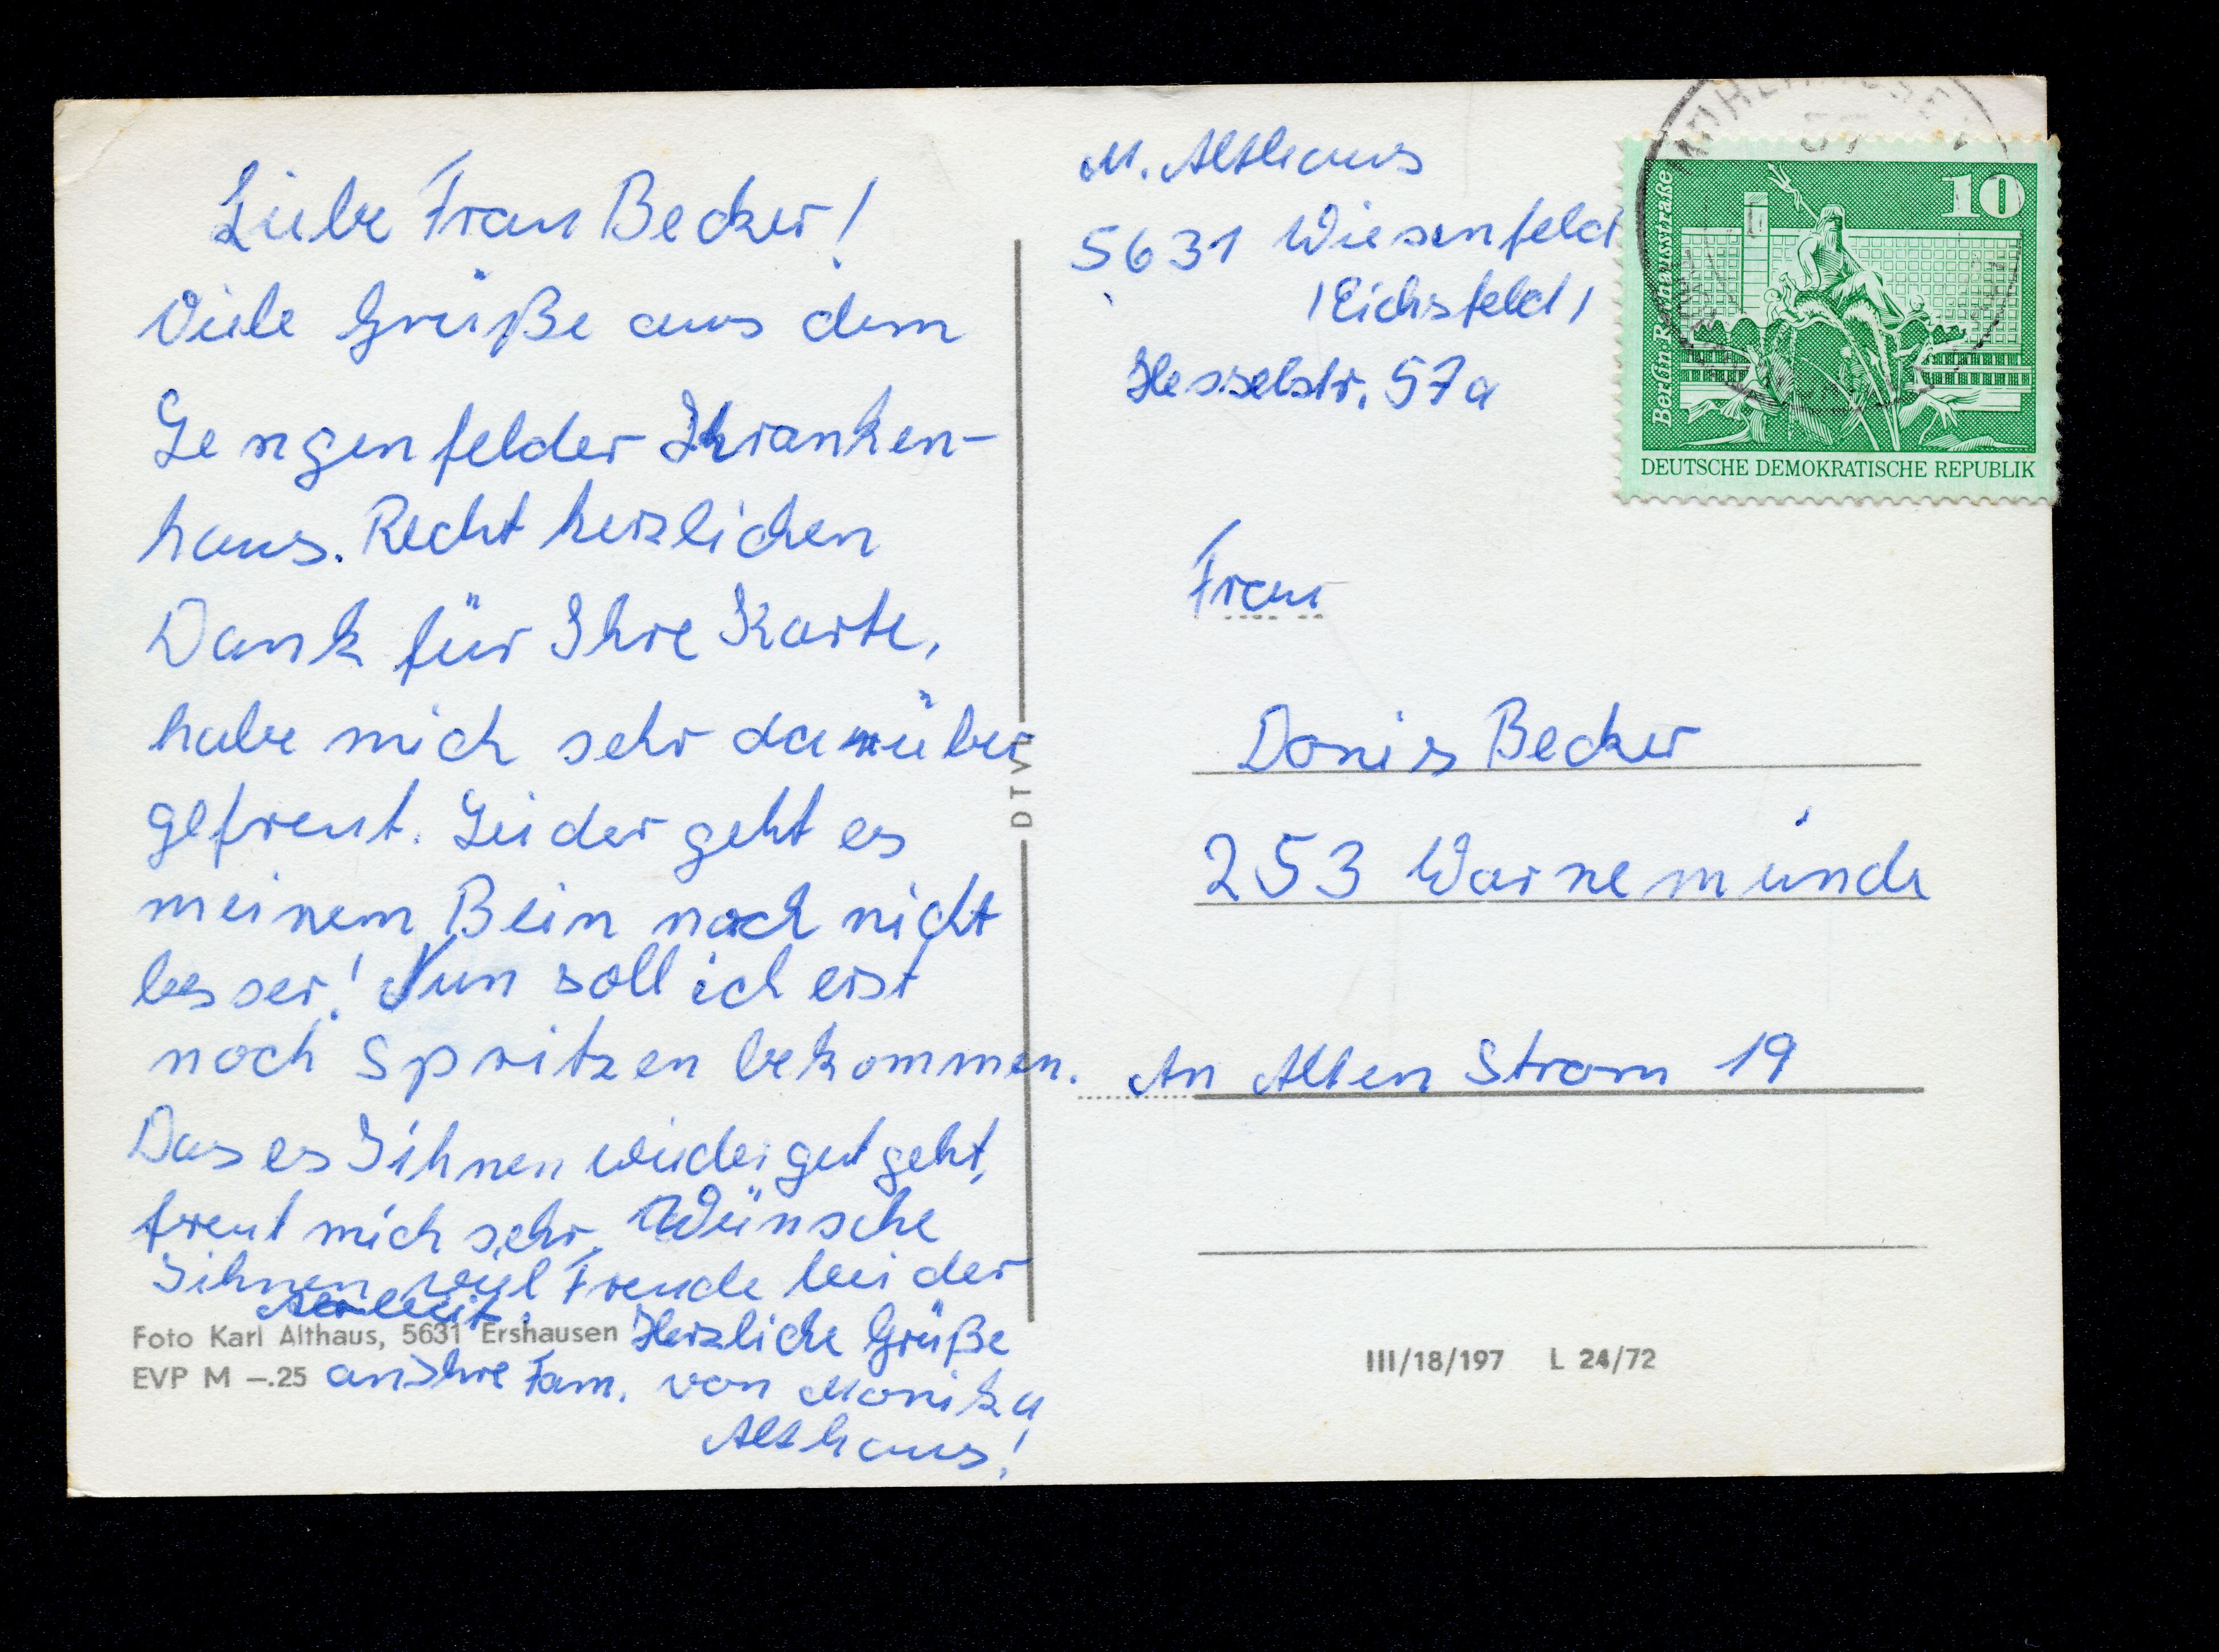 Liebe Frau Becker!
Viele Grüße aus dem
Lengenfelder Kranken-
haus. Recht herzlichen
Dank für Ihre Karte,
habe mich sehr darüber
gefreut. Leider geht es
meinem Bein noch nicht
besser! Nun soll ich erst
noch Spritzen bekommen.
Das es Sihnen wieder gut geht,
freut mich sehr. Wünsche
Sihnen viel Freude bei der
Arbeit.
Herzliche Grüße
an Ihre Fam. von Monika
Althaus!
Foto Karl Althaus, 5631 Ershausen
EVP M –.25
DTV
M. Althaus
5631 Wiesenfeld
(Eichsfeld)
Hesselstr. 57a
MÜHLHAUSEN
57
10
Berlin Rathausstraße
DEUTSCHE DEMOKRATISCHE REPUBLIK
Frau
Doris Becker
253 Warnemünde
An Alten Strom 19
III/18/197 L 24/72